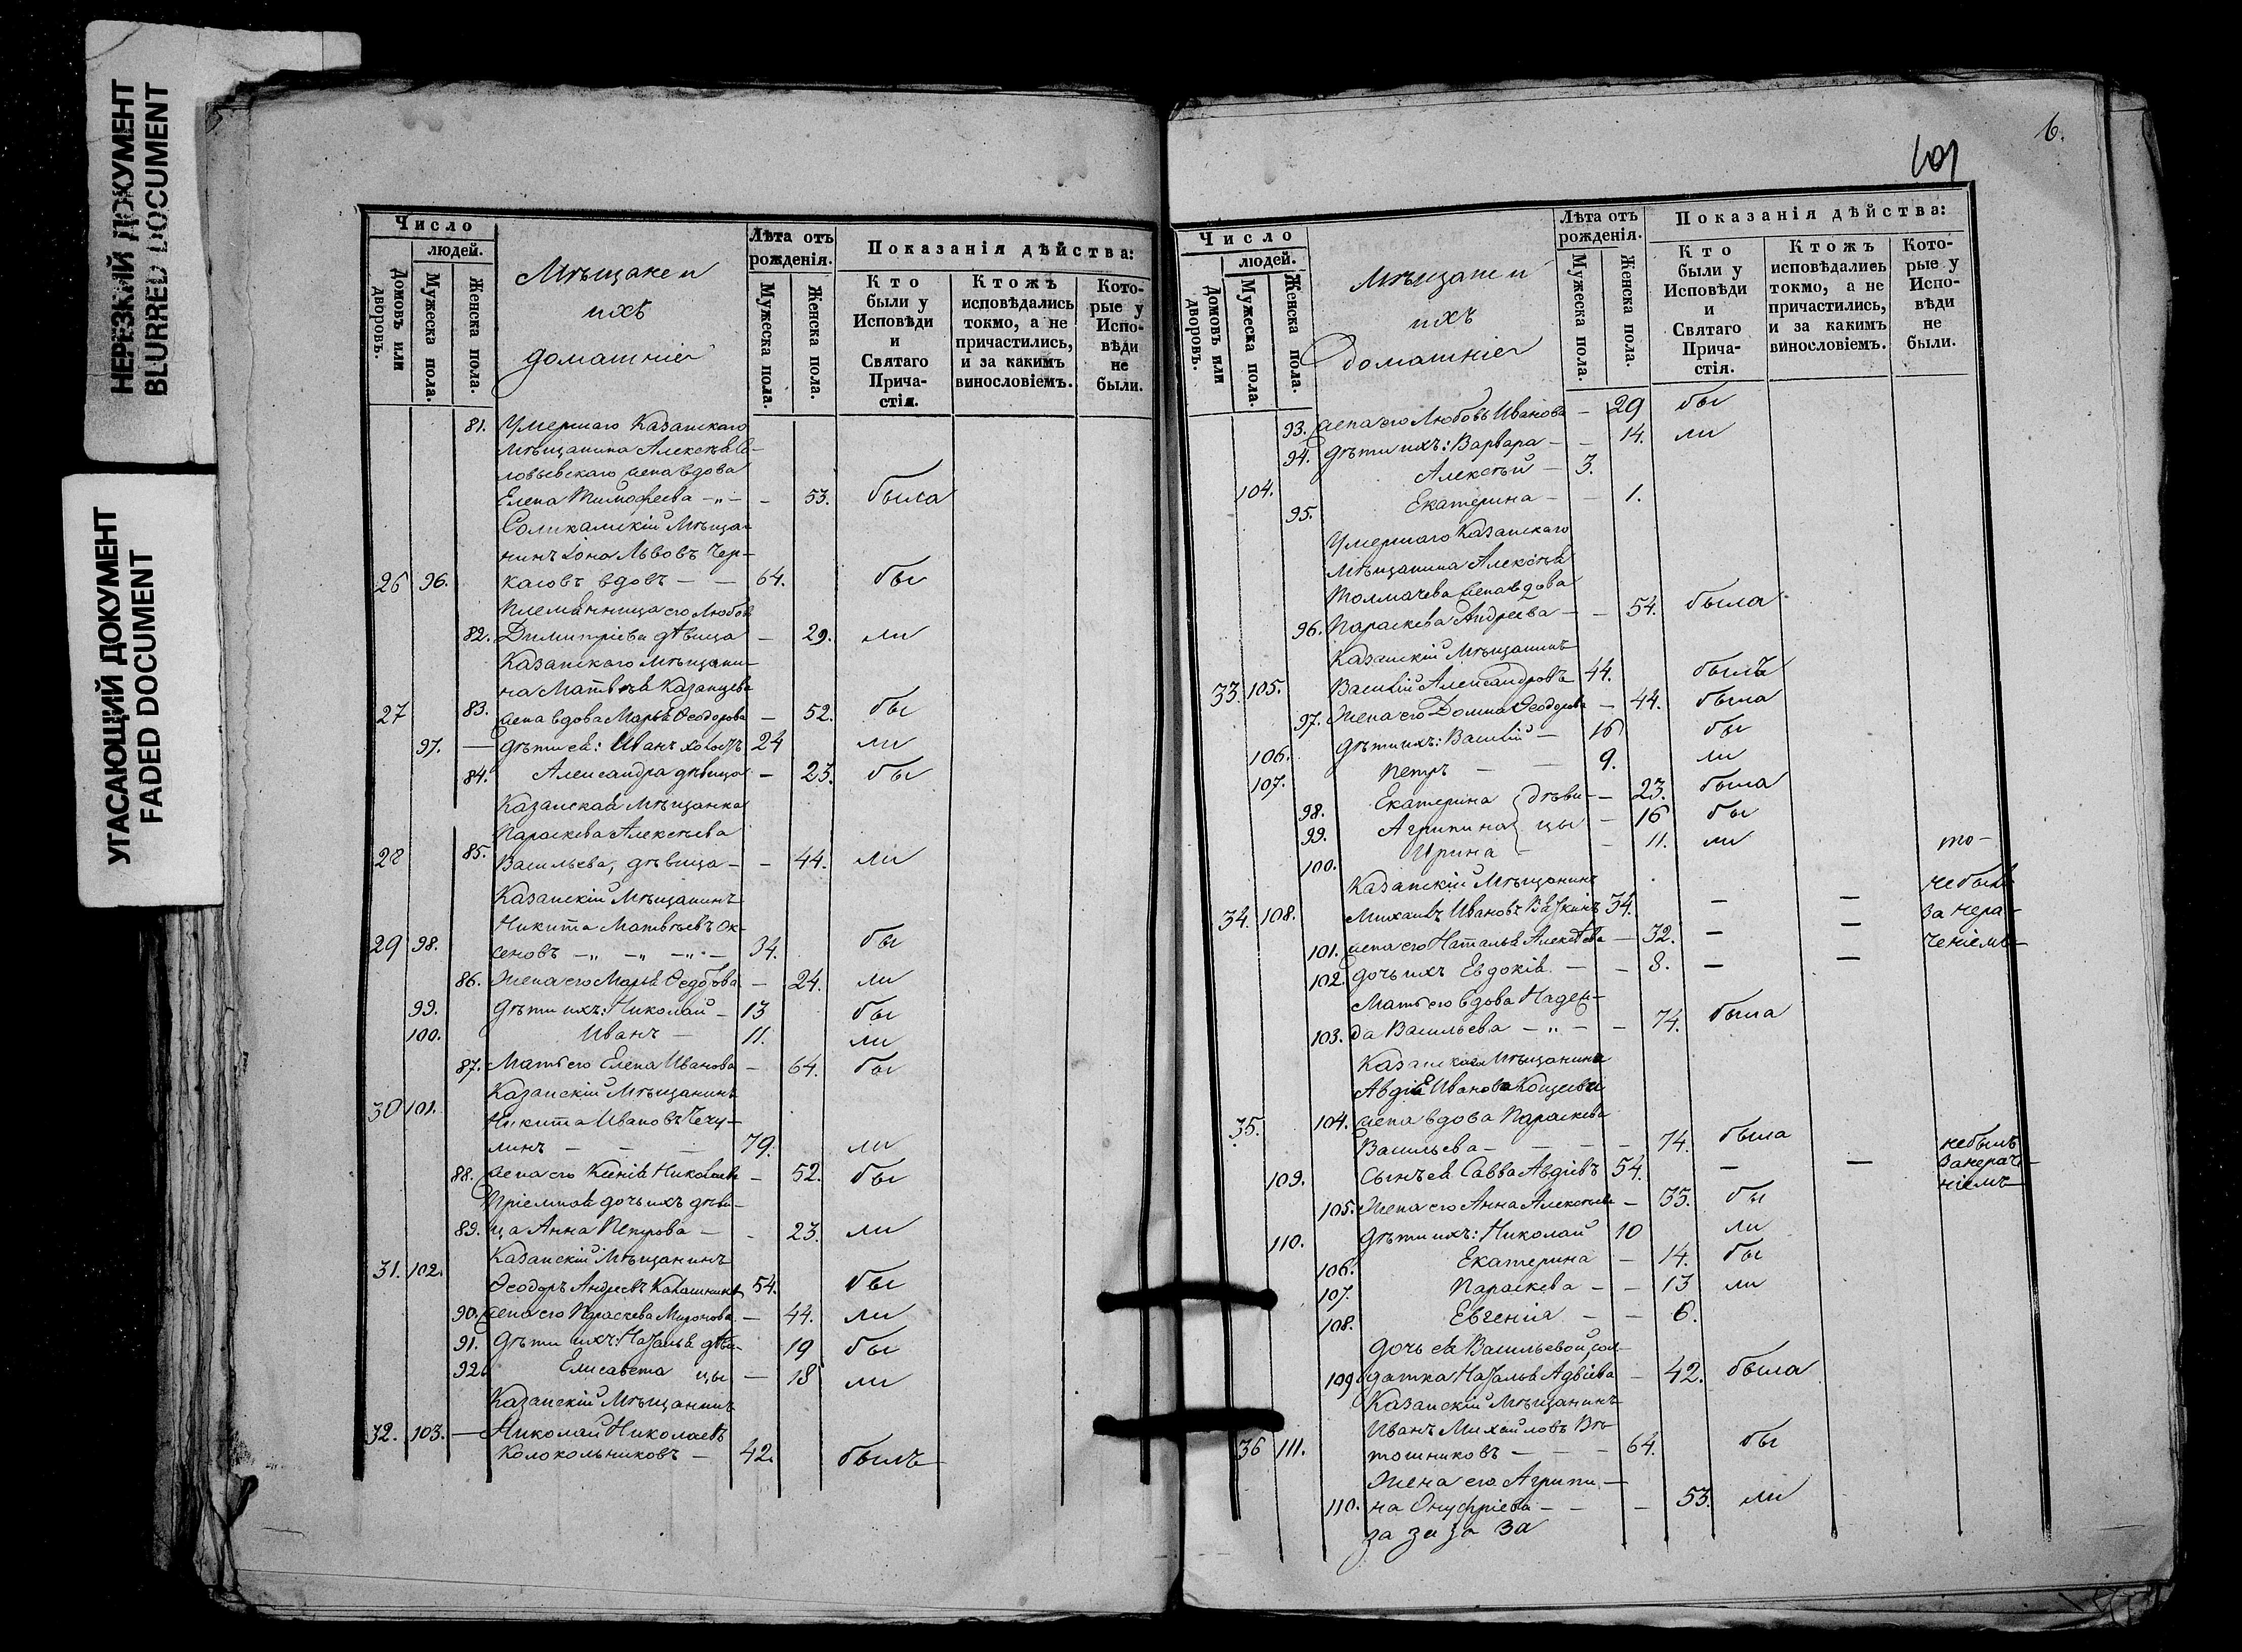 НЕРЕЗКИЙ ДОКУМЕНТ
BLURRED DOCUMENT
УГАСАЮЩИЙ ДОКУМЕНТ
FADED DOCUMENT
Число
людей.
Домовъ или дворовъ.
Мужеска пола.
Женска пола.
Мѣщане и
ихъ
домашніе
Лѣта отъ рожденія.
Мужеска пола.
Женска пола.
Показанія дѣйства:
Кто были у Исповѣди и Святаго Прича-стія.
Ктожъ исповѣдались токмо, а не причастились, и за какимъ винословіемъ.
Кото-рые у Испо-вѣди не были.
81. Умершаго Казанскаго
мѣщанина Алексѣя Со-
ловьевскаго жена вдова
Елена Тимофеева - „ - - 53. была
Соликамскій Мѣща-
нинъ Іона Львовъ Чер-
26 96. касовъ вдовъ - - 64. бы
Племянница его Любовь
82. Димитріева дѣвица - 29. ли
Казанскаго Мѣщани-
на Матвѣя Казанцева
27 83. жена вдова Марья Ѳеодорова - 52. бы
97. — дѣти ея: Иванъ холостъ 24 ли
84. Александра дѣвица - 23. бы
Казанская Мѣщанка
Параскева Алексѣева
28 85. Васильева, дѣвица - - 44. ли
Казанскій Мѣщанинъ
Никита Матвѣевъ Ак-
29 98. сеновъ - „ - „ - „ - 34. бы
86. Жена его Марья Ѳедорова - 24. ли
99. Дѣти ихъ: Николай - 13 бы
100. Иванъ - 11. ли
87. Мать его Елена Иванова - 64. бы
Казанскій Мѣщанинъ
30 101. Никита Ивановъ Чечу-
линъ - - - 79. ли
88. жена его Ксенія Николаева - 52. бы
Пріемная дочь ихъ дѣви-
89. ца Анна Петрова - - 23. ли
Казанскій Мѣщанинъ
31. 102. Ѳеодоръ Андреевъ Калашниковъ 54. бы
90. жена его Параскева Миронова - 44. ли
91. Дѣти ихъ: Наталья дѣви- 19 бы
92. Елисавета цы - 18 ли
Казанскій Мѣщанинъ
32. 103. — Николай Николаевъ
Колокольниковъ - 42. былъ
6.
101
Число
людей.
Домовъ или дворовъ.
Мужеска пола.
Женска пола.
Мѣщане и
ихъ
домашніе
Лѣта отъ рожденія.
Мужеска пола.
Женска пола.
Показанія дѣйства:
Кто были у Исповѣди и Святаго Прича-стія.
Ктожъ исповѣдались токмо, а не причастились, и за какимъ винословіемъ.
Кото-рые у Испо-вѣди не были.
93. жена его Любовь Иванова - 29 бы
94. дѣти ихъ: Варвара - - 14. ли
104. Алексѣй - 3.
95. Екатерина - - 1.
Умершаго Казанскаго
мѣщанина Алексѣя
Толмачева жена вдова
96. Параскева Андреева - - 54. была
Казанскій Мѣщанинъ
33. 105. Василій Александровъ 44. былъ
97. Жена его Домна Ѳеодорова - 44. была
106. Дѣти ихъ: Василій - 16 бы
107. Петръ - - 9. ли
98. Екатерина дѣви- - 23. была
99. Агрипина цы - 16 бы
100. Ирина - - 11. ли
Казанскій Мѣщанинъ
34. 108. Михаилъ Ивановъ 34. — — не были
101. жена его Наталья Алексѣева - 32. — — за нера-
102. дочь ихъ Евдокія - - 8. — — ченіемъ
Мать его вдова Надеж-
103. да Васильева - „ - - 74. была
Казанскаго Мѣщанина
Авдія Иванова
35. 104. жена вдова Параскева
Васильева - - - - 74. была
109. Сынъ ея Савва Авдіевъ 54. — — не былъ за нераче-ніемъ
105. Жена его Анна Алексѣева - 35. бы
110. Дѣти ихъ: Николай 10 ли
106. Екатерина - 14. бы
107. Параскева - - 13 ли
108. Евгенія - - 6.
Дочь ея Васильевой, сол-
109. датка Наталья Авдіева - 42. была
Казанскій Мѣщанинъ
Иванъ Михайловъ Вѣ-
36 111. тошниковъ - - - 64. бы
Жена его Агрипи-
110. на Онуфріева - - - 53. ли
за за за за